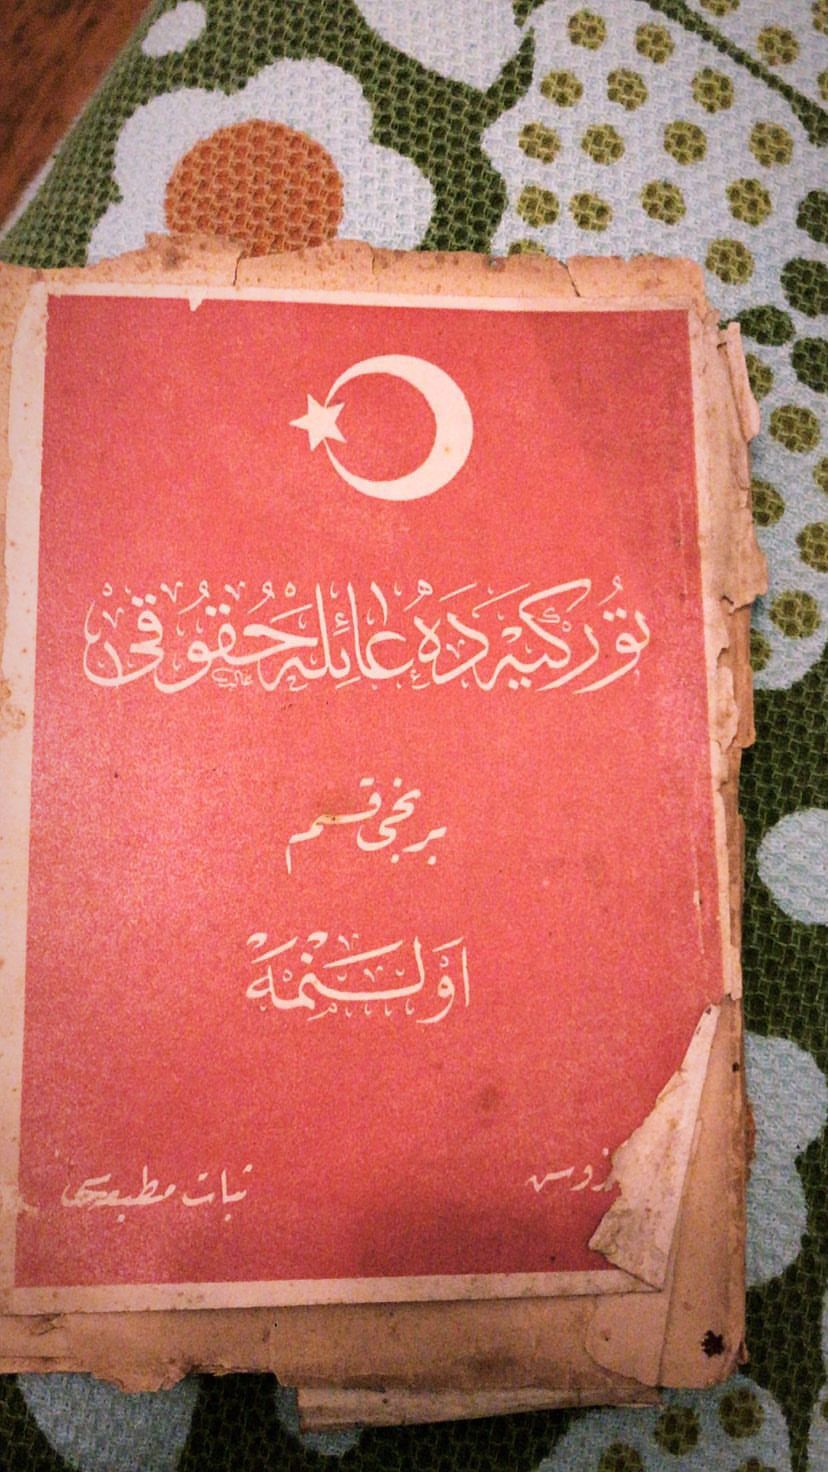 توركيه ده عائله حقوقى
برنجى قسم
اولنمه
ثبات مطبعه‌سى